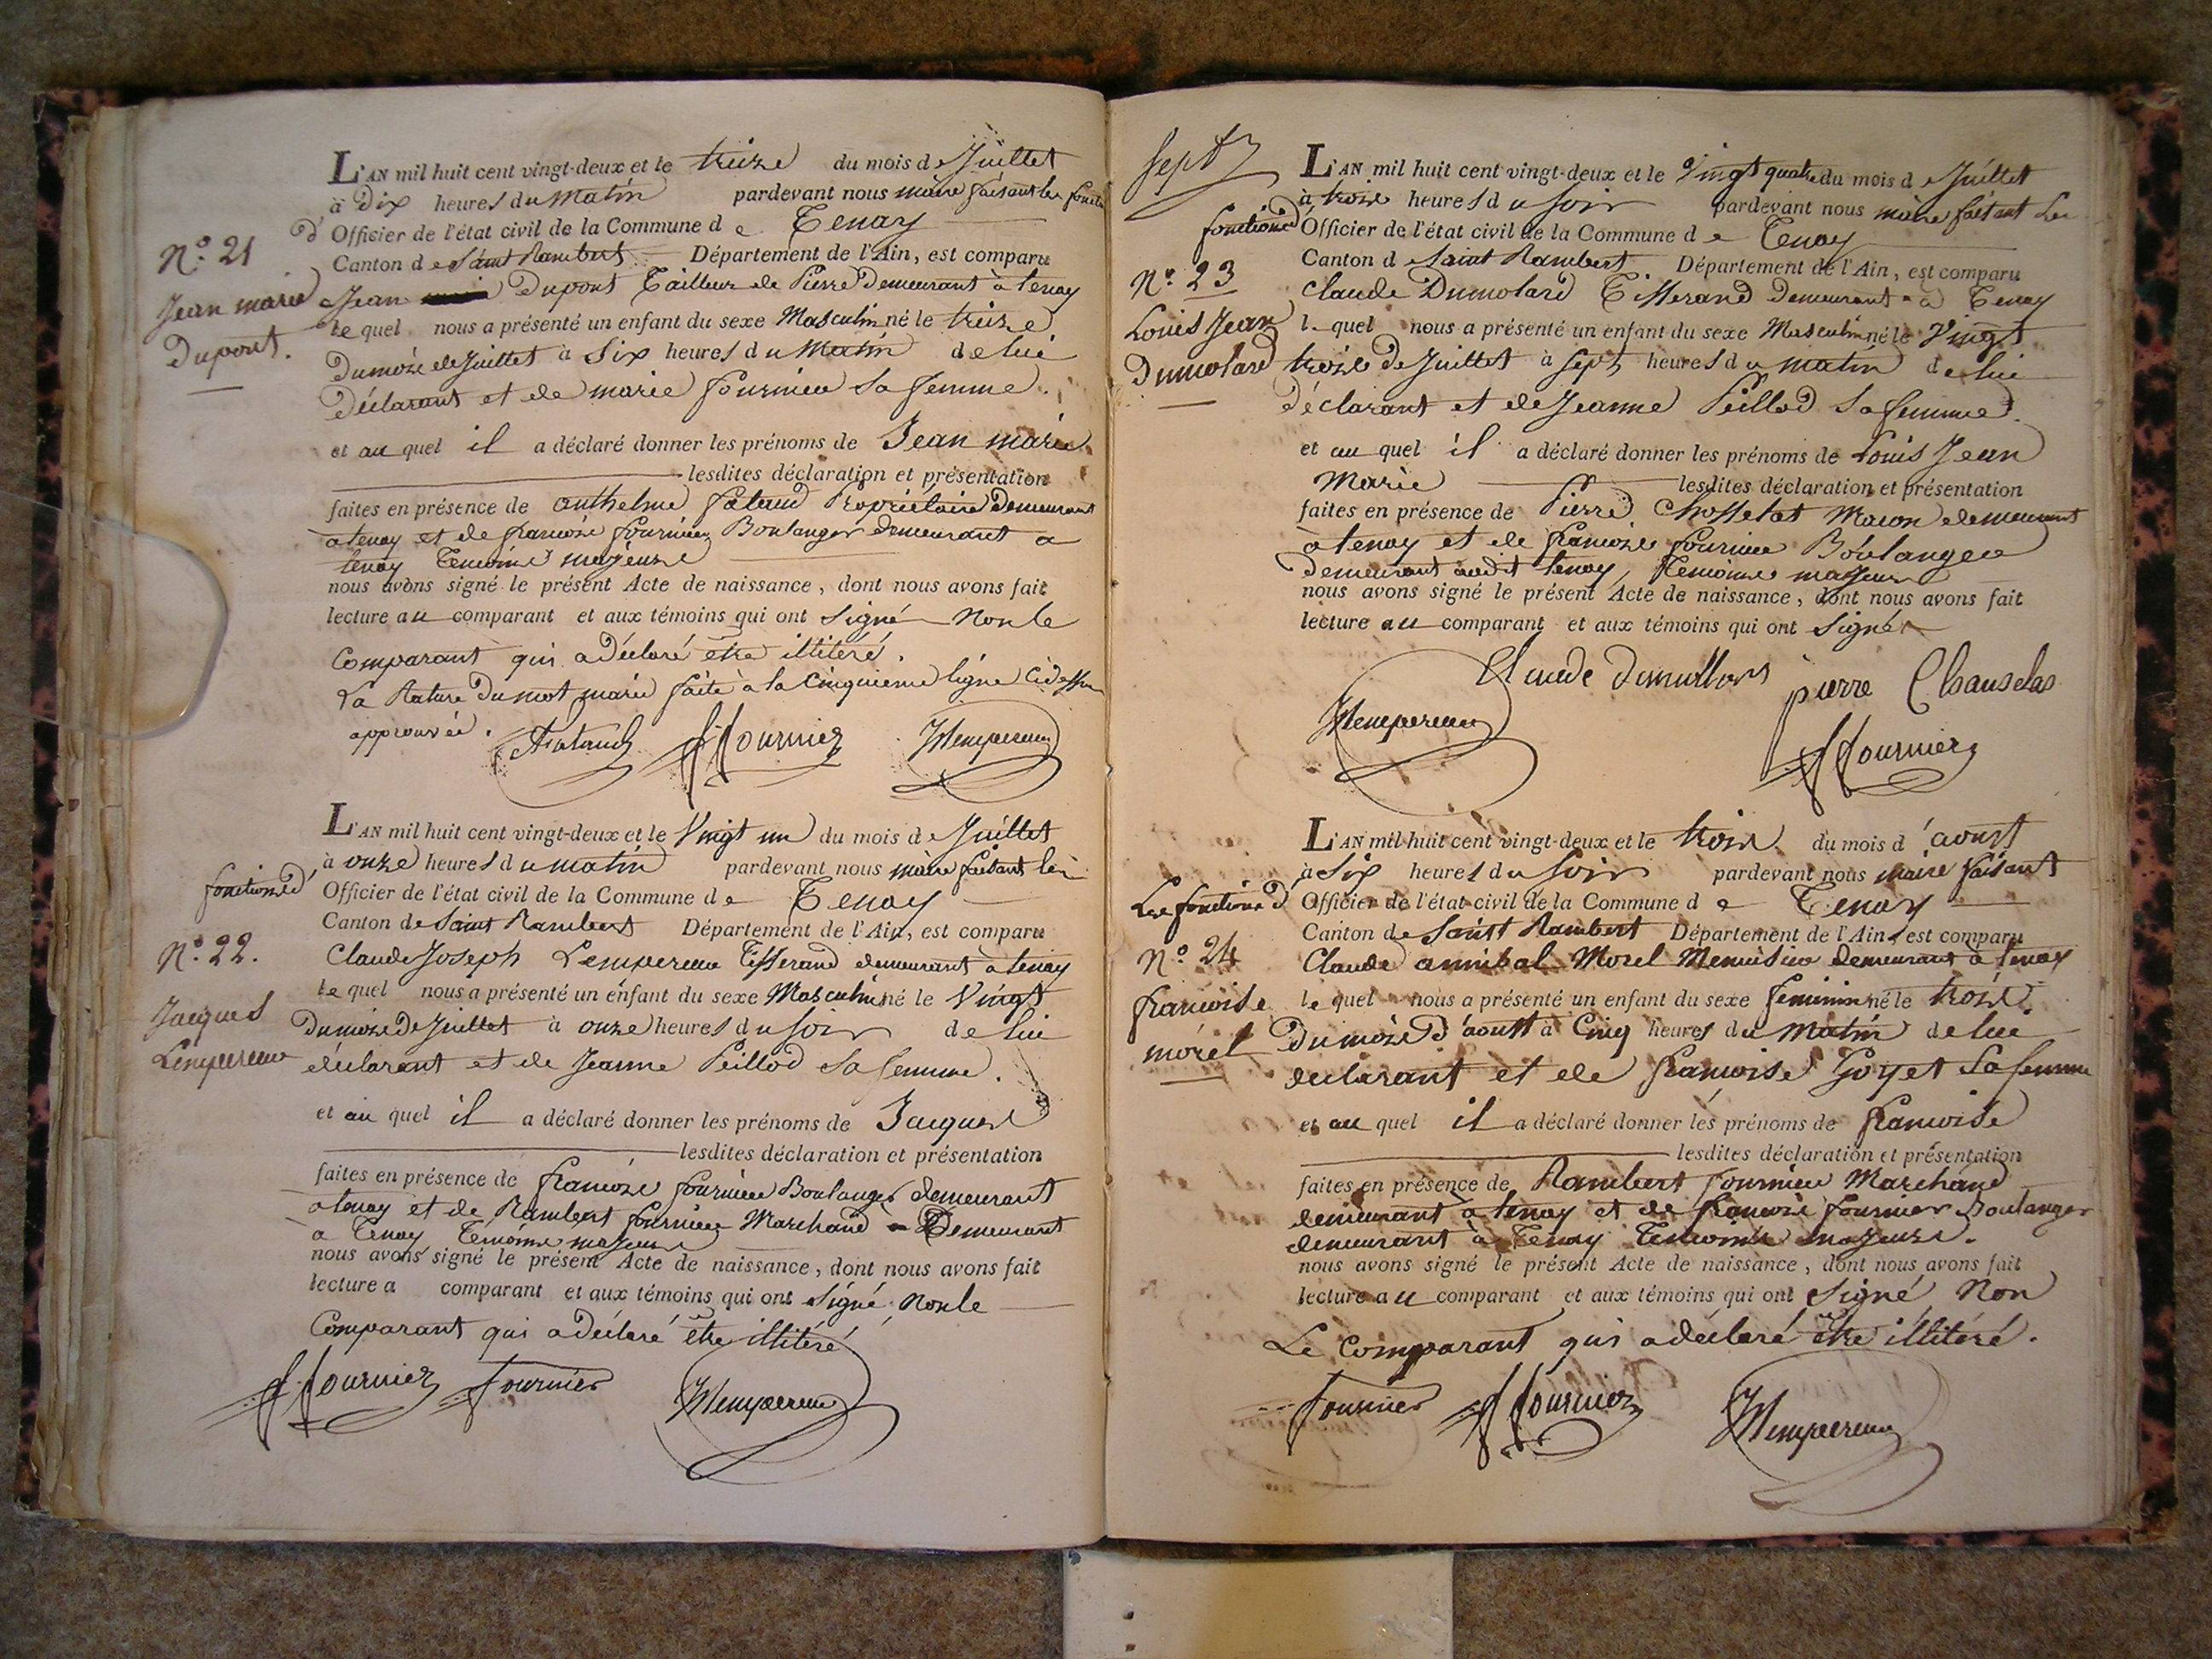 L'AN mil huit cent vingt-deux et le treize du mois de Juillet
à Dix heures du Matin pardevant nous maire faisant les fonctions
d' Officier de l'état civil de la Commune de Tenay
Canton de Saint Rambert Département de l'Ain, est comparu
N.° 21
Jean marie
Dupont.
Jean Dupont Tailleur de Pierre Demeurant à tenay
le quel nous a présenté un enfant du sexe Masculin né le treize
Dumois de Juillet à Six heures du Matin de lui
Déclarant et de marie fournier Sa femme.
et au quel il a déclaré donner les prénoms de Jean marie
lesdites déclaration et présentation
faites en présence de anthelme Propriétaire Demeurant
a tenay et de francois fournier Boulanger demeurant a
tenay Temoins majeurs
nous avons signé le présent Acte de naissance, dont nous avons fait
lecture au comparant et aux témoins qui ont Signé Non le
Comparant qui a déclaré etre illitéré.
La Rature Du mot marie faite à la Cinquieme ligne Cidessus
approuvée.
ffournier
L'AN mil huit cent vingt-deux et le Vingt un du mois de Juillet
à onze heures du matin pardevant nous maire faisant les
fonctions d' Officier de l'état civil de la Commune de Tenay
Canton de Saint Rambert Département de l'Ain, est comparu
N.° 22.
Jacques
Lempereur
Claude Joseph Lempereur Tisserand demeurant à tenay
le quel nous a présenté un enfant du sexe Masculin né le Vingt
Dumois De Juillet à onze heures du Soir de lui
déclarant et de Jeanne Peillod Sa femme.
et au quel il a déclaré donner les prénoms de Jacques
lesdites déclaration et présentation
faites en présence de francois fournier Boulanger demeurant
a tenay et de Rambert fournier Marchand Demeurant
à Tenay Temoins majeurs
nous avons signé le présent Acte de naissance, dont nous avons fait
lecture a comparant et aux témoins qui ont Signé Non le
Comparant qui a déclaré etre illitéré
ffournier fournier
Sept
L'AN mil huit cent vingt-deux et le Vingt quatre du mois de Juillet
à trois heures du Soir pardevant nous maire faisant Les
fonctions d' Officier de l'état civil de la Commune de Tenay
Canton de Saint Rambert Département de l'Ain, est comparu
N.° 23
Louis Jean
Dumolard
Claude Dumolard Tisserand Demeurant a Tenay
l quel nous a présenté un enfant du sexe Masculin né le Vingt
trois de Juillet à Sept heures du matin de lui
déclarant et de Jeanne Peillod Sa femme.
et au quel il a déclaré donner les prénoms de Louis Jean
Marie lesdites déclaration et présentation
faites en présence de Pierre Chosselat Macon demeurant
a tenay et de francois fournier Boulanger
demeurant audit tenay, Temoins majeurs
nous avons signé le présent Acte de naissance, dont nous avons fait
lecture au comparant et aux témoins qui ont Signé
Claude
pierre Chauselas
ffournier
L'AN mil huit cent vingt-deux et le trois du mois d'aoust
à Six heures du Soir pardevant nous maire faisant
Les fonctions d' Officier de l'état civil de la Commune de Tenay
Canton de Saint Rambert Département de l'Ain, est comparu
N.° 24
francoise
morel
Claude annibal Morel Menuisier demeurant à tenay
le quel nous a présenté un enfant du sexe feminin né le trois
Dumois D'aoust à Cinq heures du Matin de lui
déclarant et de francoise Goyet Sa femme
et au quel il a déclaré donner les prénoms de francoise
lesdites déclaration et présentation
faites en présence de Rambert fournier Marchand
demeurant à tenay et de francois fournier Boulanger
demeurant à Tenay Temoins majeurs.
nous avons signé le présent Acte de naissance, dont nous avons fait
lecture au comparant et aux témoins qui ont Signé Non
Le Comparant qui a déclaré etre illitéré.
fournier ffournier